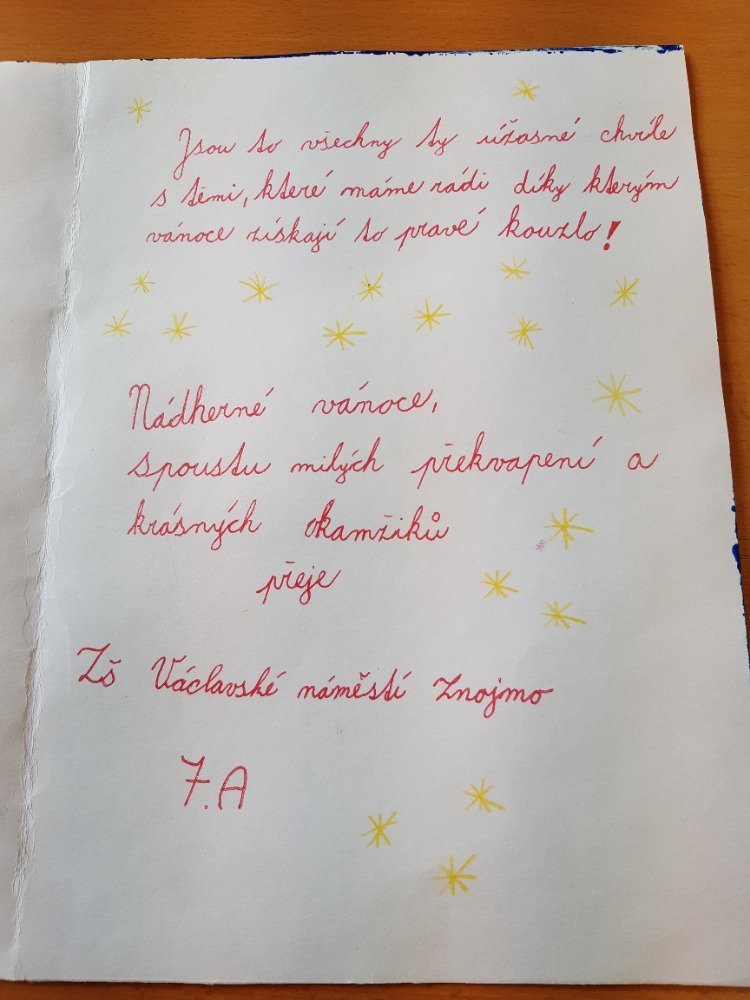 Jsou to všechny ty úžasné chvíle
s těmi, které máme rádi díky kterým
vánoce získají to pravé kouzlo!
Nádherné vánoce,
spoustu milých překvapení a
krásných okamžiků
přeje
Zš Václavské náměstí Znojmo
7.A